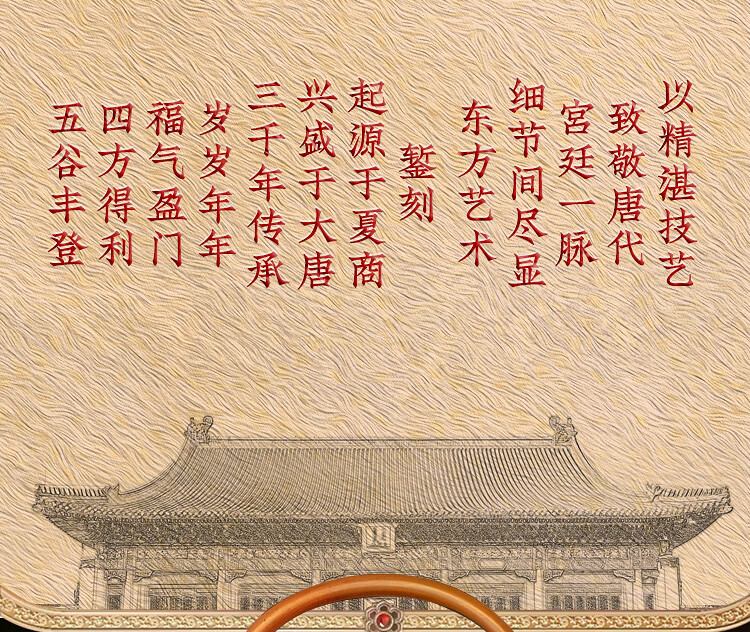 以精湛技艺
致敬唐代
宫廷一脉
细节间尽显
东方艺术
錾刻
起源于夏商
兴盛于大唐
三千年传承
岁岁年年
福气盈门
四方得利
五谷丰登